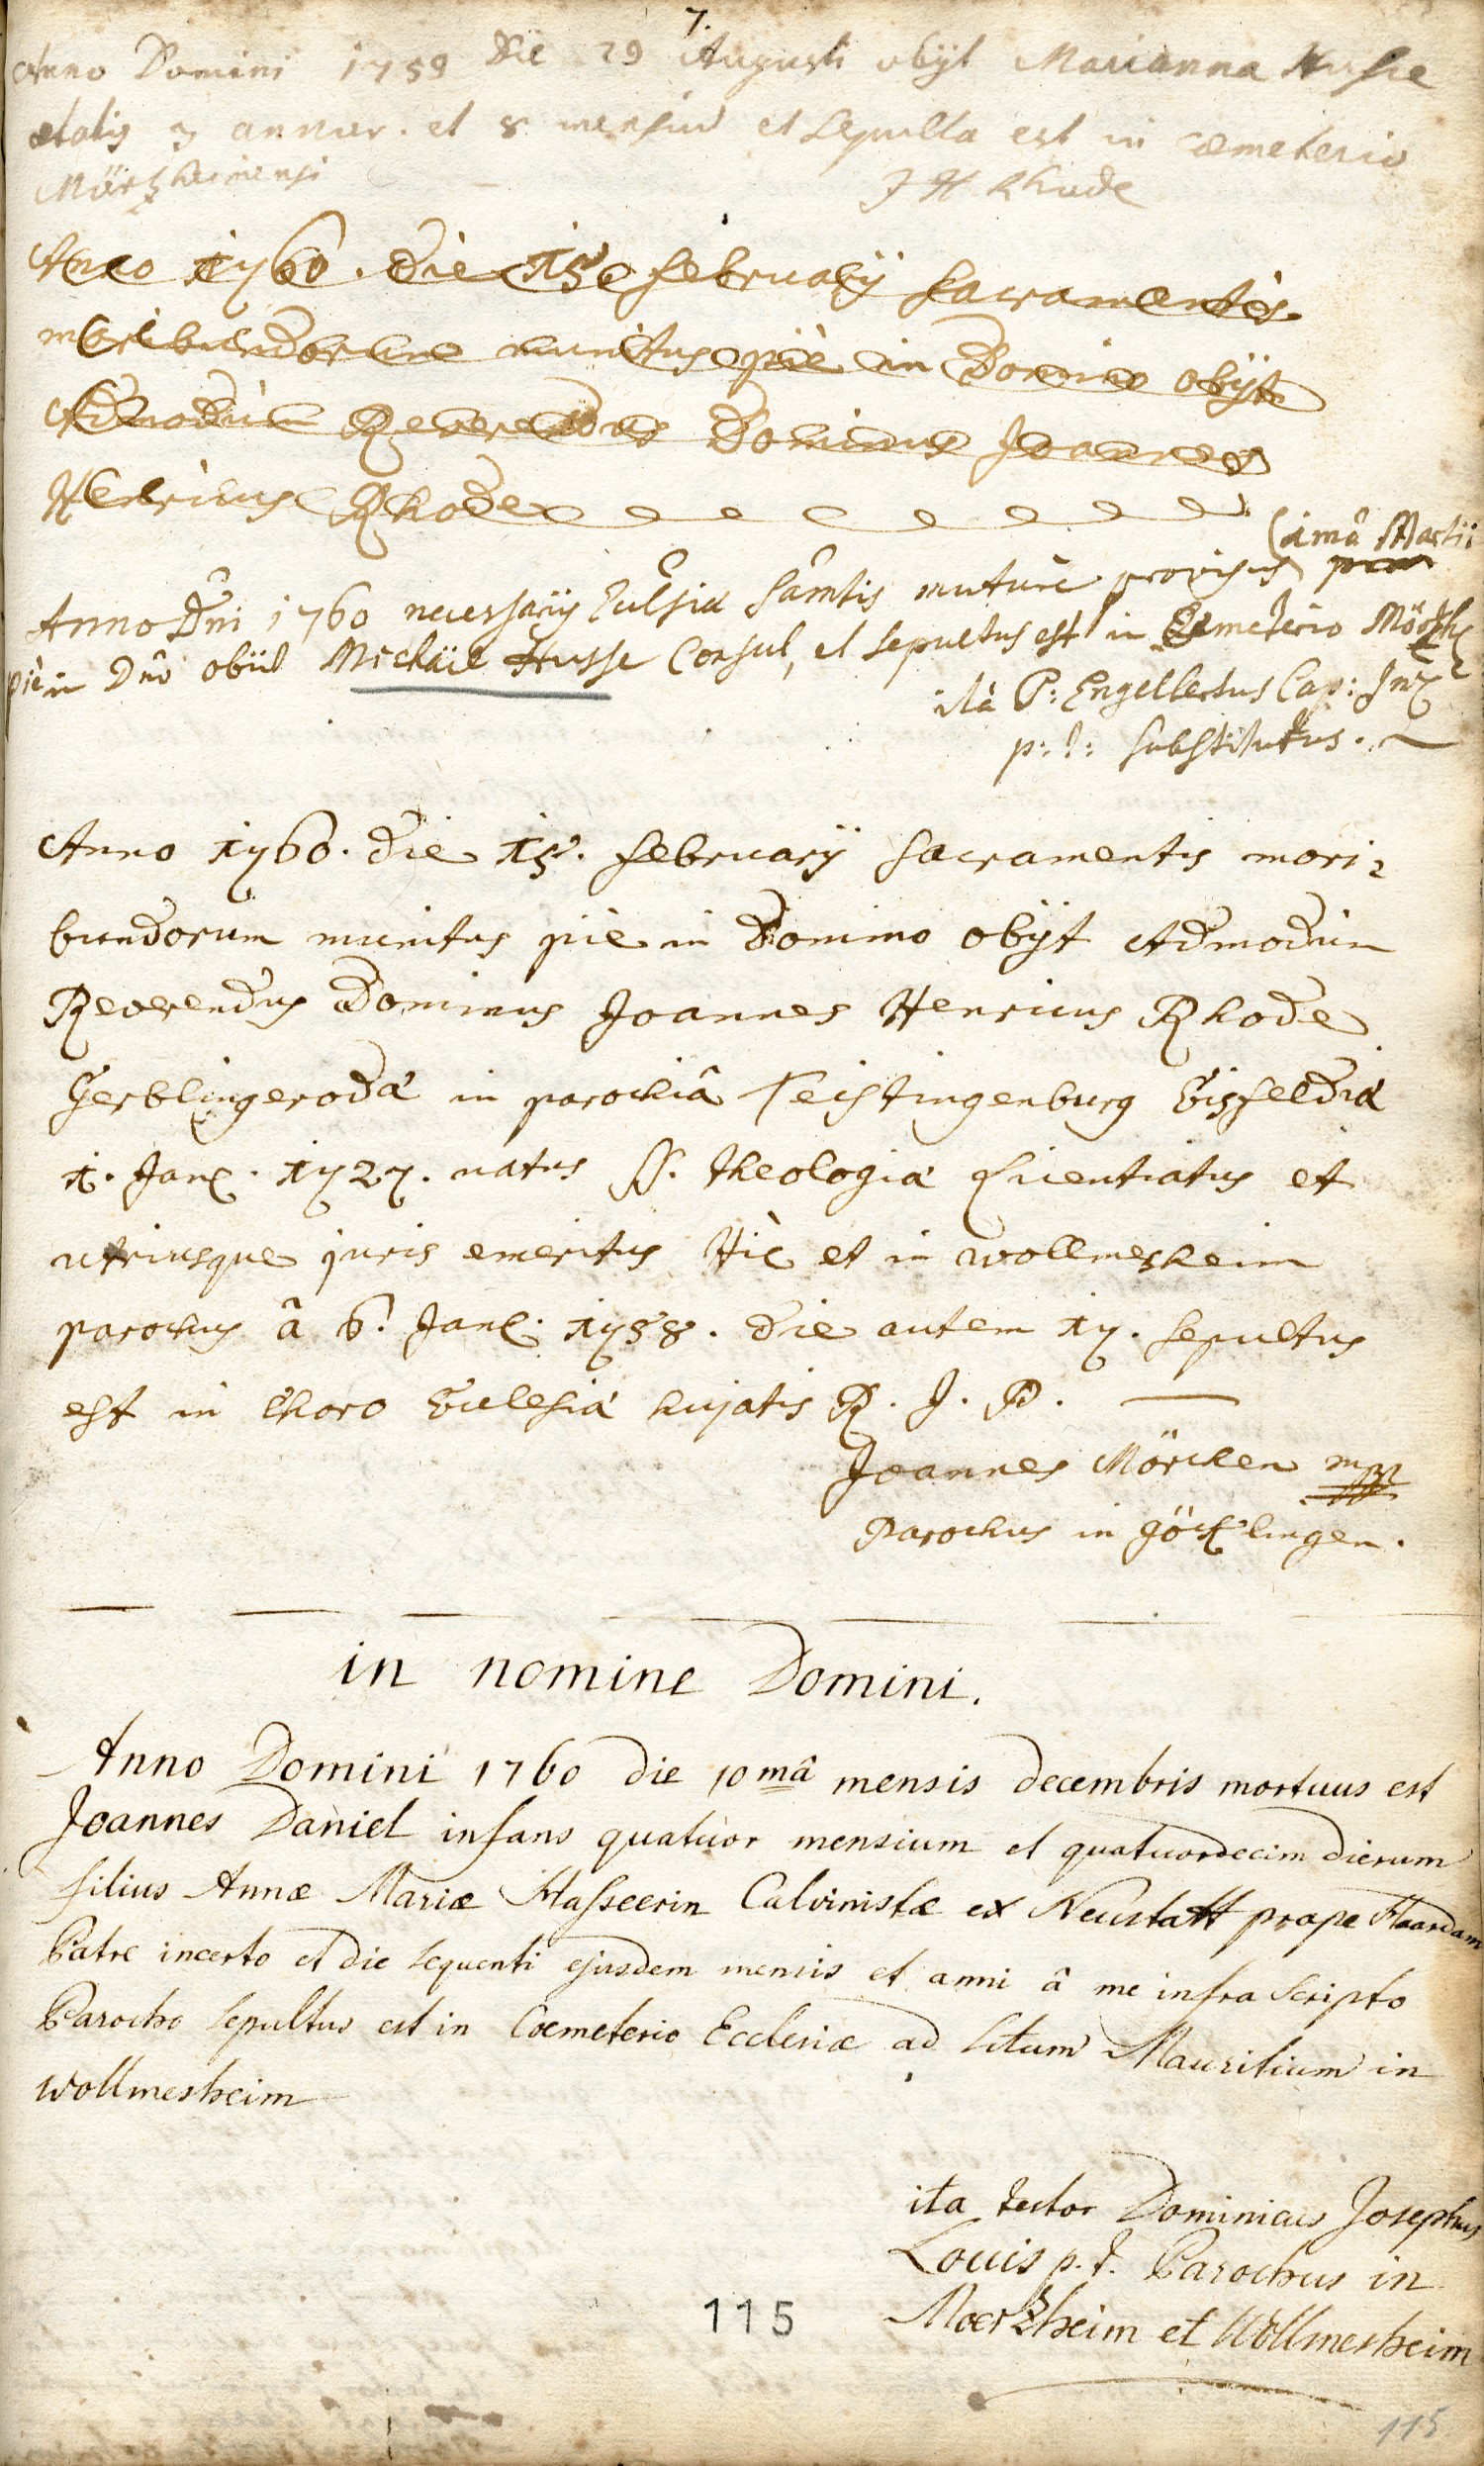 7.
Anno Domini 1759 die 29 Augusti obijt Marianna Husse
ætatis 3 annor. et 8 mensiu et sepulta est in cœmeterio
Mörzheimensi
J H Rhode
Anno 1760. die 15 february sacramentis
moribundorum munitus piè in Domino obijt
Admodùm Reverendus Dominus Joannes
Henricus Rhode
(imâ Martii
Anno Dni 1760 necessarijs Eccliæ Sâmtis mature provisus
piè in Dnô obiit Michäel Husse Consul, et sepultus est in Cemeterio Mörzh
ità P: Engelbertus Cap:
p: t: substitutus.
Anno 1760. die 15. february sacramentis mori-
bundorum munitus piè in Domino obijt Admodùm
Reverendus Dominus Joannes Henricus Rhode
Gerblingerodæ in parochiâ Teistingenburg Eisfeldiæ
1. Jan. 1727. natus SS. theologiæ Licentiatus et
utriusque juris emeritus Hic et in wollmesheim
parochus â 6. Jan. 1758. die autem 17. sepultus
est in Choro Ecclesiæ hujatis R. J. P.
Joannes Mörchen mpp
Parochus in göcklingen.
in nomine Domini.
Anno Domini 1760 die 10mâ mensis decembris mortuus est
Joannes Daniel infans quatuor mensium et quatuordecim dierum
filius Annæ Mariæ Hasseerin Calvinistæ ex Neustatt prope Haardam
Patre incerto et die sequenti ejusdem mensis et anni â me infra scripto
Parocho sepultus est in Coemeterio Ecclesiæ ad Stum Mauritium in
wollmesheim
ita testor Dominicus Josephus
Louis p. t. Parochus in
Moerzheim et Wollmesheim
115
115